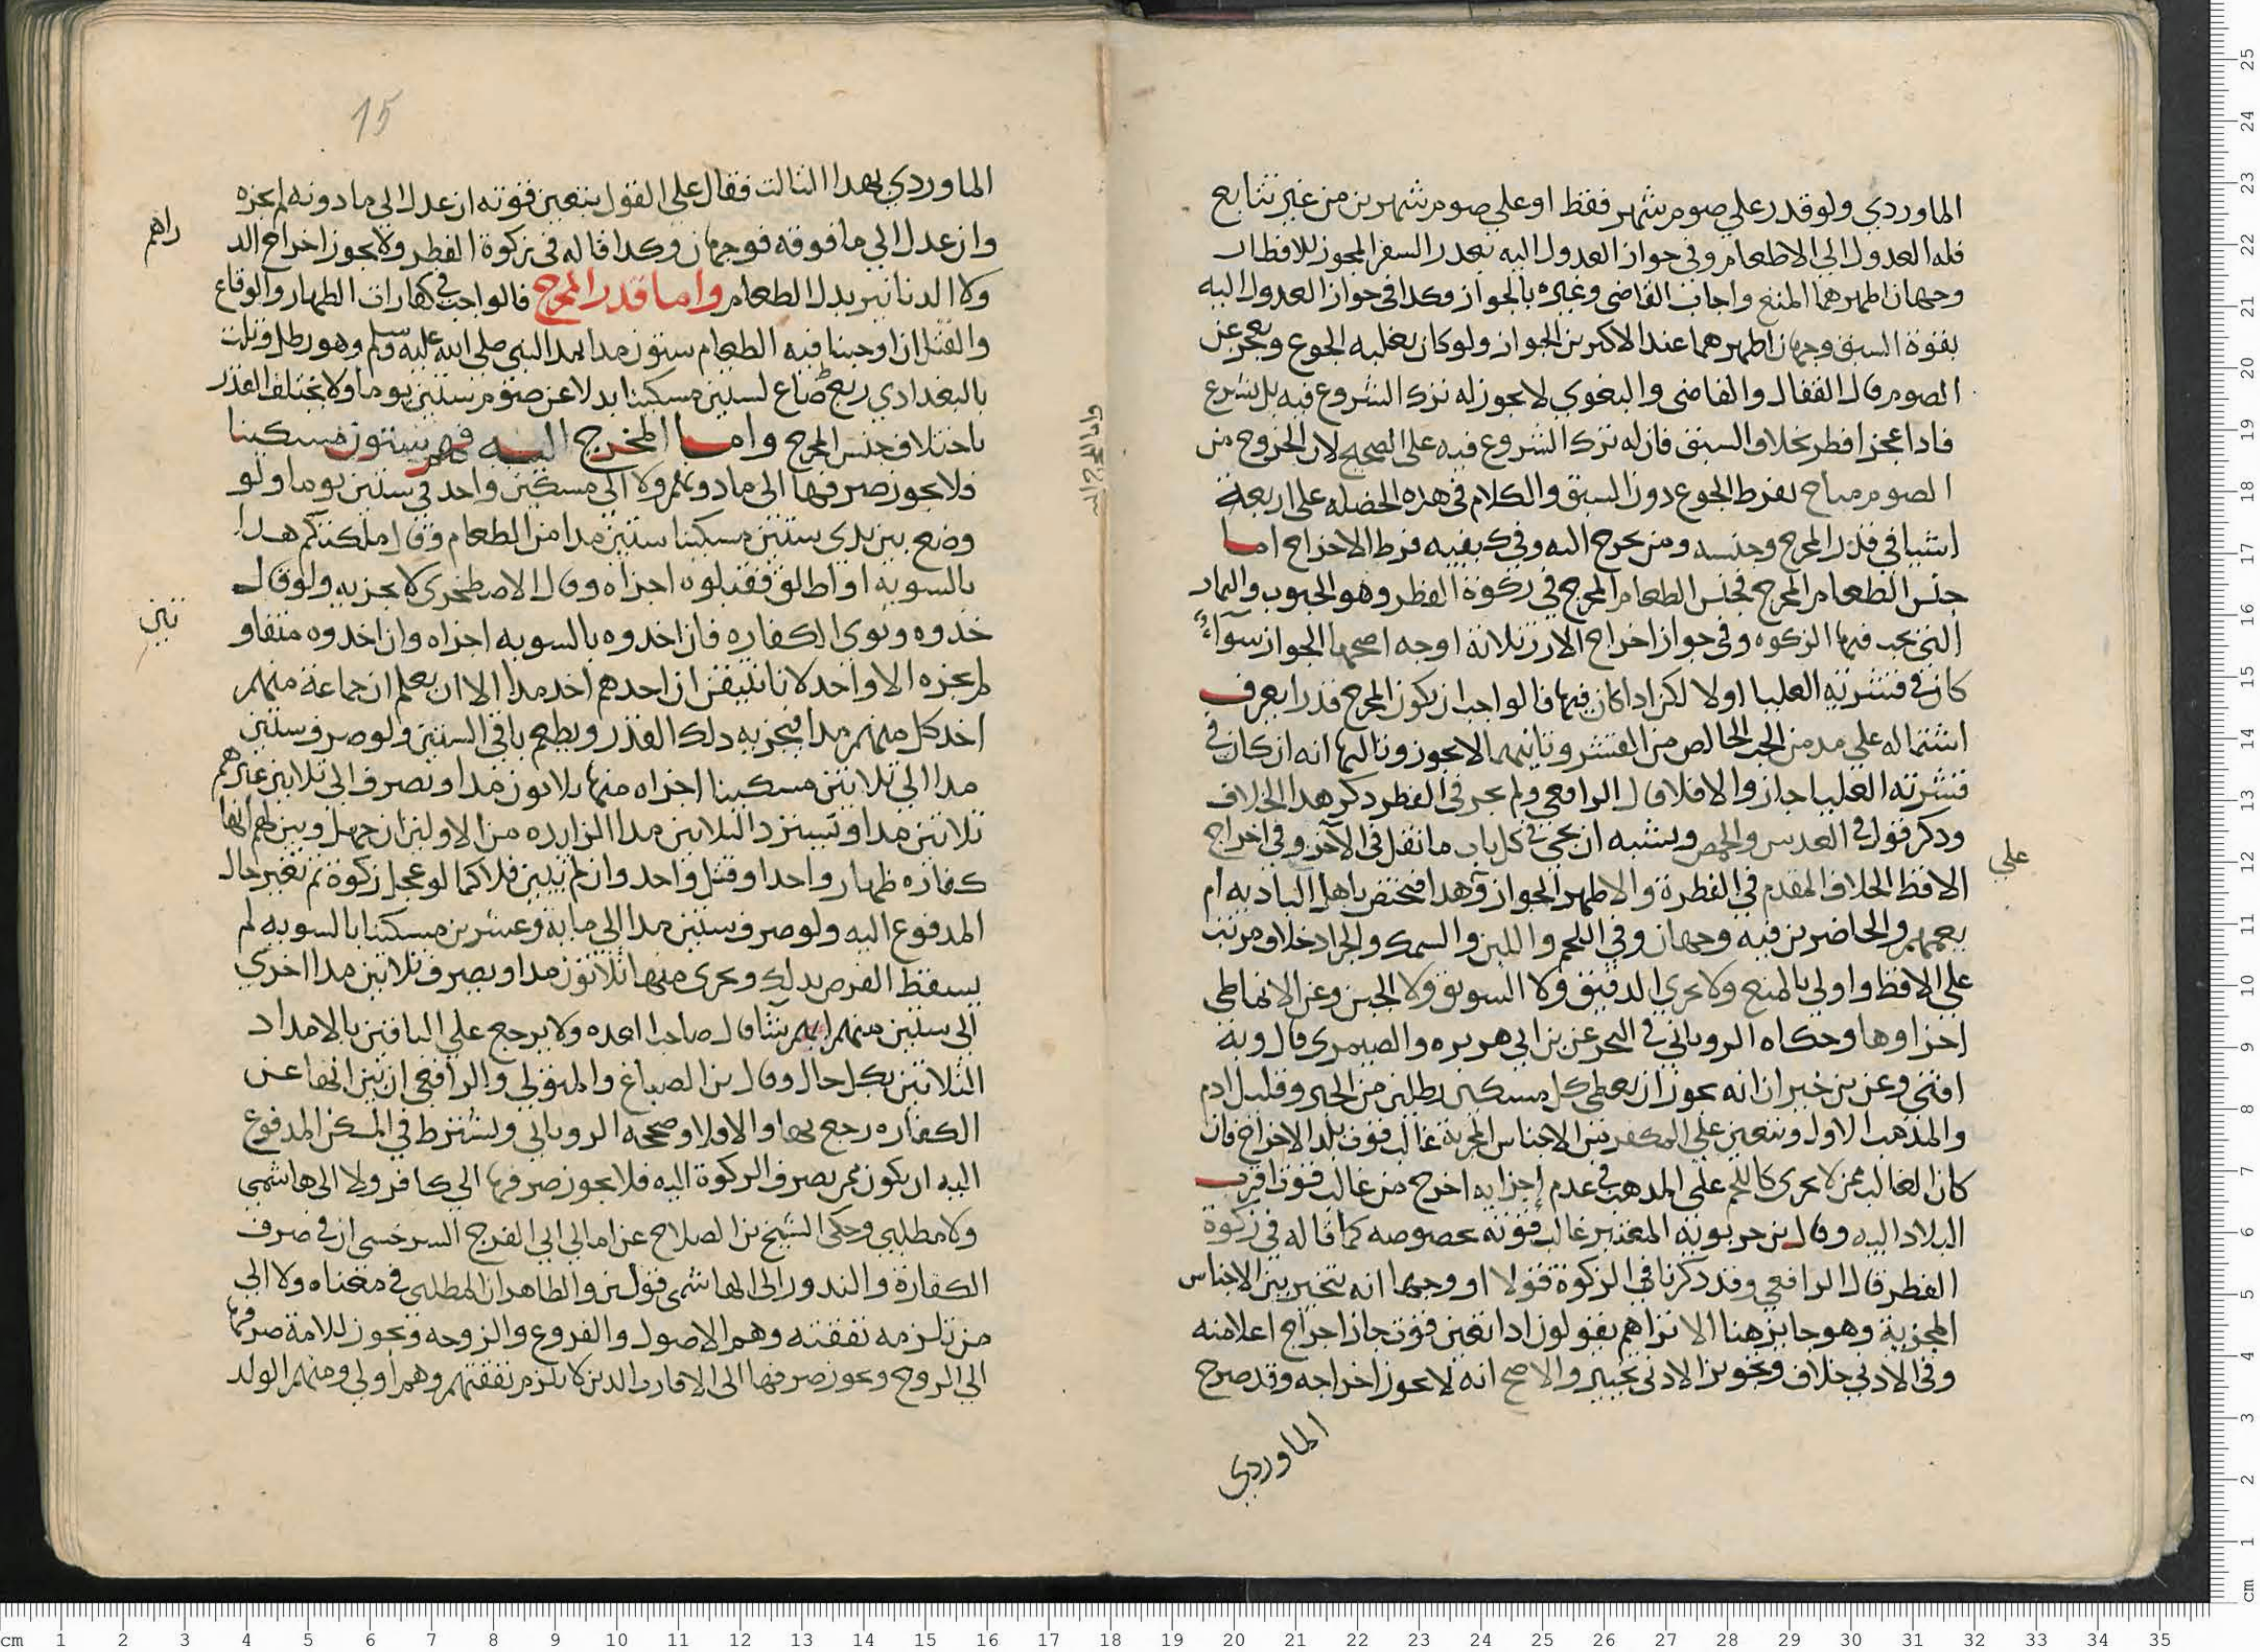 الماوردي ولو قدر علي صوم شهر فقط او علي صوم شهرين من غير تتابع
فله العدول الي الاطعام وفي جواز العدول اليه بعذر السفر المجوز للافطار
وجهان اظهرهما المنع واجاب القاضي وغيره بالجواز وكدا في جواز العدول اليه
بقوة السبق وجهان اظهرهما عند الاكثرين الجواز ولو كان يغلبه الجوع ويعجز عن
الصوم قال القفال والقاضي والبغوي لا يجوز له ترك الشروع فيه بل يشرع
فادا عجز افطر بخلاف السبق فان له ترك الشروع فيه علي الصحيح لان الخروج من
الصوم مباح بفرط الجوع دون السبق والكلام في هذه الخصله علي اربعة
اشيا في قدر المخرج وجنسه ومن يخرج اليه وفي كيفيه فرط الاخراج اما
جنس الطعام المخرج فجنس الطعام المخرج في زكوة الفطر وهو الحبوب والثمار
التي تجب فيها الزكوه وفي جواز اخراج الارز ثلاثة اوجه اصحها الجواز سواء
كان في قشرته العليا اولا لكن ادا كان فيها فالواجب ان يكون المخرج قدرا يعرف
اشتماله علي مد من الحب الخالص من القشر وثانيهما لا يجوز وثالثها انه ان كان في
قشرته العليا جاز والا فلا قال الرافعي ولم يجر في الفطر ذكر هدا الخلاف
ودكر قول في العدس والحمص ويشبه ان يجي في كل باب ما نقل في الاخر وفي اخراج
علي
الاقط الخلاف المقدم في الفطرة والاظهر الجواز وهدا مختص باهل البادية ام
يعمهم والحاضرين فيه وجهان وفي اللحم واللبن والسمك والجراد خلاف مرتب
علي الاقط واولي بالمنع ولا يجري الدقيق ولا السويق ولا الجبن وعن الانماطي
اجزاوها وحكاه الروياني في البحر عن بن ابي هريره والصيمري قال وبه
افتي وعن بن خيران انه يجوز ان يعطي كل مسكين رطلين من الخبز وقليل ادم
والمذهب الاول ويتعين علي المكفر من الاجناس المجزية غالب قوت بلد الاخراج فان
كان الغالب ممن لا يجري كاللحم علي المدهب في عدم إجزايه اخرج من غالب قوت اقرب
البلاد اليه وقال بن حربويه المعتبر غالب قوته بخصوصه كما قاله في زكوة
الفطر قال الرافعي وقد دكرنا في الزكوة قولا او وجها انه يتخير بين الاجناس
المجزية وهو جا بزهنا الا تراهم يقولون ادا تعين قوت جاز اخراج اعلا منه
وفي الادني خلاف وتجويز الادني تخيير والاصح انه لا يجوز اخراجه وقد صرح
الماوردي
واما المخرج اليه
15
الماوردي بهدا الثالث فقال علي القول بتعين قوته ان عدل الي ما دونه لم يجزه
وان عدل الي ما فوقه فوجهان وكدا قاله في زكوة الفطر ولا يجوز اخراج الد
راهم
ولا الدنانير بدل الطعام واما قدر المخرج فالواجب في كفارات الظهار والوقاع
والقتل ان اوجبنا فيه الطعام ستون مدا بمد النبي صلي الله عليه وسلم وهو رطل وثلث
بالبغدادي ربع صاع لستين مسكينا بدلا عن صوم ستين يوما ولا يختلف القدر
باختلاف جنس المخرج واما المخرج اليه فهم ستون مسكينا
فلا يجوز صرفها الي ما دونهم ولا الي مسكين واحد في ستين يوما ولو
وضع بين يدي ستين مسكينا ستين مدا من الطعام وقال ملكتكم هدا
بالسوية او اطلق فقبلوه اجزاه وقال الاصطخري لا يجزيه ولو قال
خدوه ونوي الكفاره فان اخدوه بالسويه اجزاه وان اخدوه متفاو
تين
لم يجزه الا واحد لانا نتيقن ان احدهم اخد مدا الا ان يعلم ان جماعة منهم
اخد كل منهم مدا فيجزيه دلك القدر ويطعم باقي الستين ولو صرف ستين
مدا الي ثلاثين مسكينا اجزاه منها ثلاثون مدا ويصرف الي ثلاثين غيرهم
ثلاثين مدا ويسترد الثلاثين مدا الزايده من الاولين ان جهل وبين لهم انها
كفارة ظهار واحد او قتل واحد وان لم يبين فلا كما لو عجل زكوة ثم تغير حال
المدفوع اليه ولو صرف ستين مدا الي ماية وعشرين مسكينا بالسويه لم
يسقط الفرض بدلك ويجزي منها ثلاثون مدا ويصرف ثلاثين مدا اخري
الي ستين منهم ايهم شا قال صاحب العده ولا يرجع علي الباقين بالامداد
الثلاثين بكل حال وقال بن الصباغ والمتولي والرافعي ان بين انها عن
الكفاره رجع بها والا فلا وصححه الروياني ويشترط في المسكين المدفوع
اليه ان يكون ممن يصرف الزكوة اليه فلا يجوز صرفها الي كافر ولا الي هاشمي
ولا مطلبي وحكي الشيخ بن الصلاح عن امالي ابي الفرج السرخسي ان في صرف
الكفارة والندور الي الهاشمي قولين والظاهر ان المطلبي في معناه ولا الي
من تلزمه نفقته وهم الاصول والفروع والزوجه ويجوز للامة صرفها
الي الزوج ويجوز صرفها الي الاقارب الدين لا يلزم نفقتهم وهم اولي ومنهم الولد